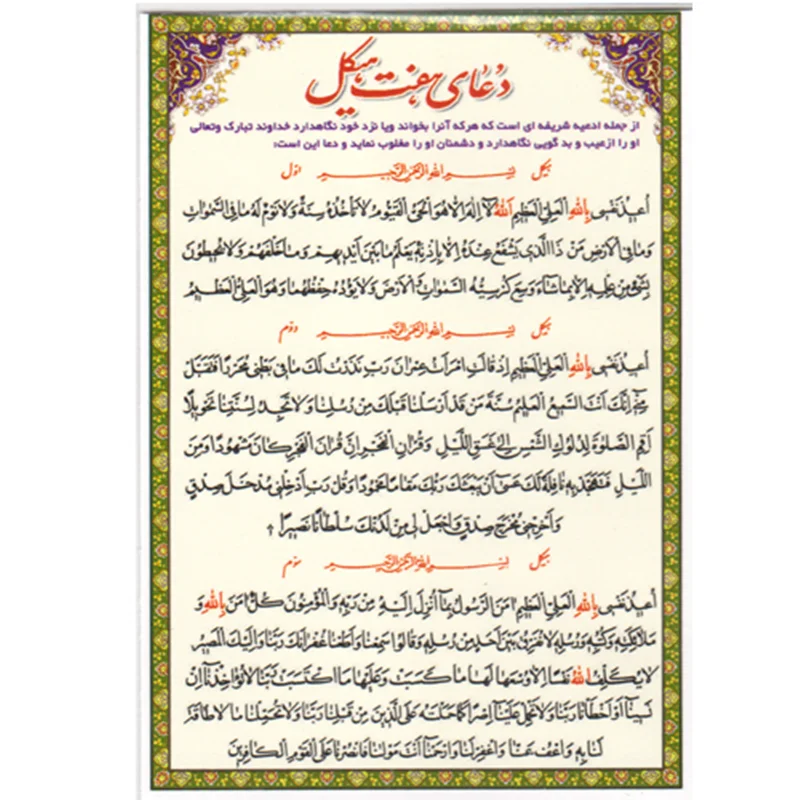 دعای هفت هیکل
از جمله ادعیه شریفه ای است که هرکه آنرا بخواند ویا نزد خود نگاهدارد خداوند تبارک وتعالی
او را ازعیب و بد گویی نگاهدارد و دشمنان او را مغلوب نماید و دعا این است:
هیکل بسم الله الرحمن الرحیم اول
اُعیذُ نَفْسی بِاللهِ الْعَلِیِّ الْعَظیمِ اَللهُ لا اِلهَ اِلاّ هُوَ الْحَیُّ الْقَیُّومُ لا تَأْخُذُهُ سِنَةٌ وَ لا نَوْمٌ لَهُ ما فِی السَّمٰواتِ
وَ ما فِی الْاَرْضِ مَنْ ذَا الَّذی یَشْفَعُ عِنْدَهُ اِلاّ بِاِذْنِهِ یَعْلَمُ ما بَیْنَ اَیْدیهِمْ وَ ما خَلْفَهُمْ وَ لا یُحیطُونَ
بِشَیْءٍ مِنْ عِلْمِهِ اِلاّ بِما شاءَ وَسِعَ کُرْسِیُّهُ السَّمٰواتِ وَ الْاَرْضَ وَ لا یَؤُدُهُ حِفْظُهُما وَ هُوَ الْعَلِیُّ الْعَظیمُ
هیکل بسم الله الرحمن الرحیم دوم
اُعیذُ نَفْسی بِاللهِ الْعَلِیِّ الْعَظیمِ اِذْ قالَتِ امْرَاَتُ عِمْرانَ رَبِّ نَذَرْتُ لَکَ ما فی بَطْنی مُحَرَّراً فَتَقَبَّلْ
مِنّی اِنَّکَ اَنْتَ السَّمیعُ الْعَلیمُ سُنَّةَ مَنْ قَدْ اَرْسَلْنا قَبْلَکَ مِنْ رُسُلِنا وَ لا تَجِدُ لِسُنَّتِنا تَحْویلاً
اَقِمِ الصَّلوةَ لِدُلُوکِ الشَّمْسِ اِلی غَسَقِ اللَّیْلِ وَ قُرْانَ الْفَجْرِ اِنَّ قُرْانَ الْفَجْرِ کانَ مَشْهُوداً وَ مِنَ
اللَّیْلِ فَتَهَجَّدْ بِهِ نافِلَةً لَکَ عَسی اَنْ یَبْعَثَکَ رَبُّکَ مَقاماً مَحْمُوداً وَ قُلْ رَبِّ اَدْخِلْنی مُدْخَلَ صِدْقٍ
وَ اَخْرِجْنی مُخْرَجَ صِدْقٍ وَ اجْعَلْ لی مِنْ لَدُنْکَ سُلْطاناً نَصیراً
هیکل بسم الله الرحمن الرحیم سوم
اُعیذُ نَفْسی بِاللهِ الْعَلِیِّ الْعَظیمِ امَنَ الرَّسُولُ بِما اُنْزِلَ اِلَیْهِ مِنْ رَبِّهِ وَ الْمُؤْمِنُونَ کُلٌّ امَنَ بِاللهِ وَ
مَلائِکَتِهِ وَ کُتُبِهِ وَ رُسُلِهِ لا نُفَرِّقُ بَیْنَ اَحَدٍ مِنْ رُسُلِهِ وَ قالُوا سَمِعْنا وَ اَطَعْنا غُفْرانَکَ رَبَّنا وَ اِلَیْکَ الْمَصیرُ
لا یُکَلِّفُ اللهُ نَفْساً اِلاّ وُسْعَها لَها ما کَسَبَتْ وَ عَلَیْها مَا اکْتَسَبَتْ رَبَّنا لا تُؤاخِذْنا اِنْ
نَسینا اَوْ اَخْطَأْنا رَبَّنا وَ لا تَحْمِلْ عَلَیْنا اِصْراً کَما حَمَلْتَهُ عَلَی الَّذینَ مِنْ قَبْلِنا رَبَّنا وَ لا تُحَمِّلْنا ما لا طاقَةَ
لَنا بِهِ وَ اعْفُ عَنّا وَ اغْفِرْ لَنا وَ ارْحَمْنا اَنْتَ مَوْلانا فَانْصُرْنا عَلَی الْقَوْمِ الْکافِرینَ